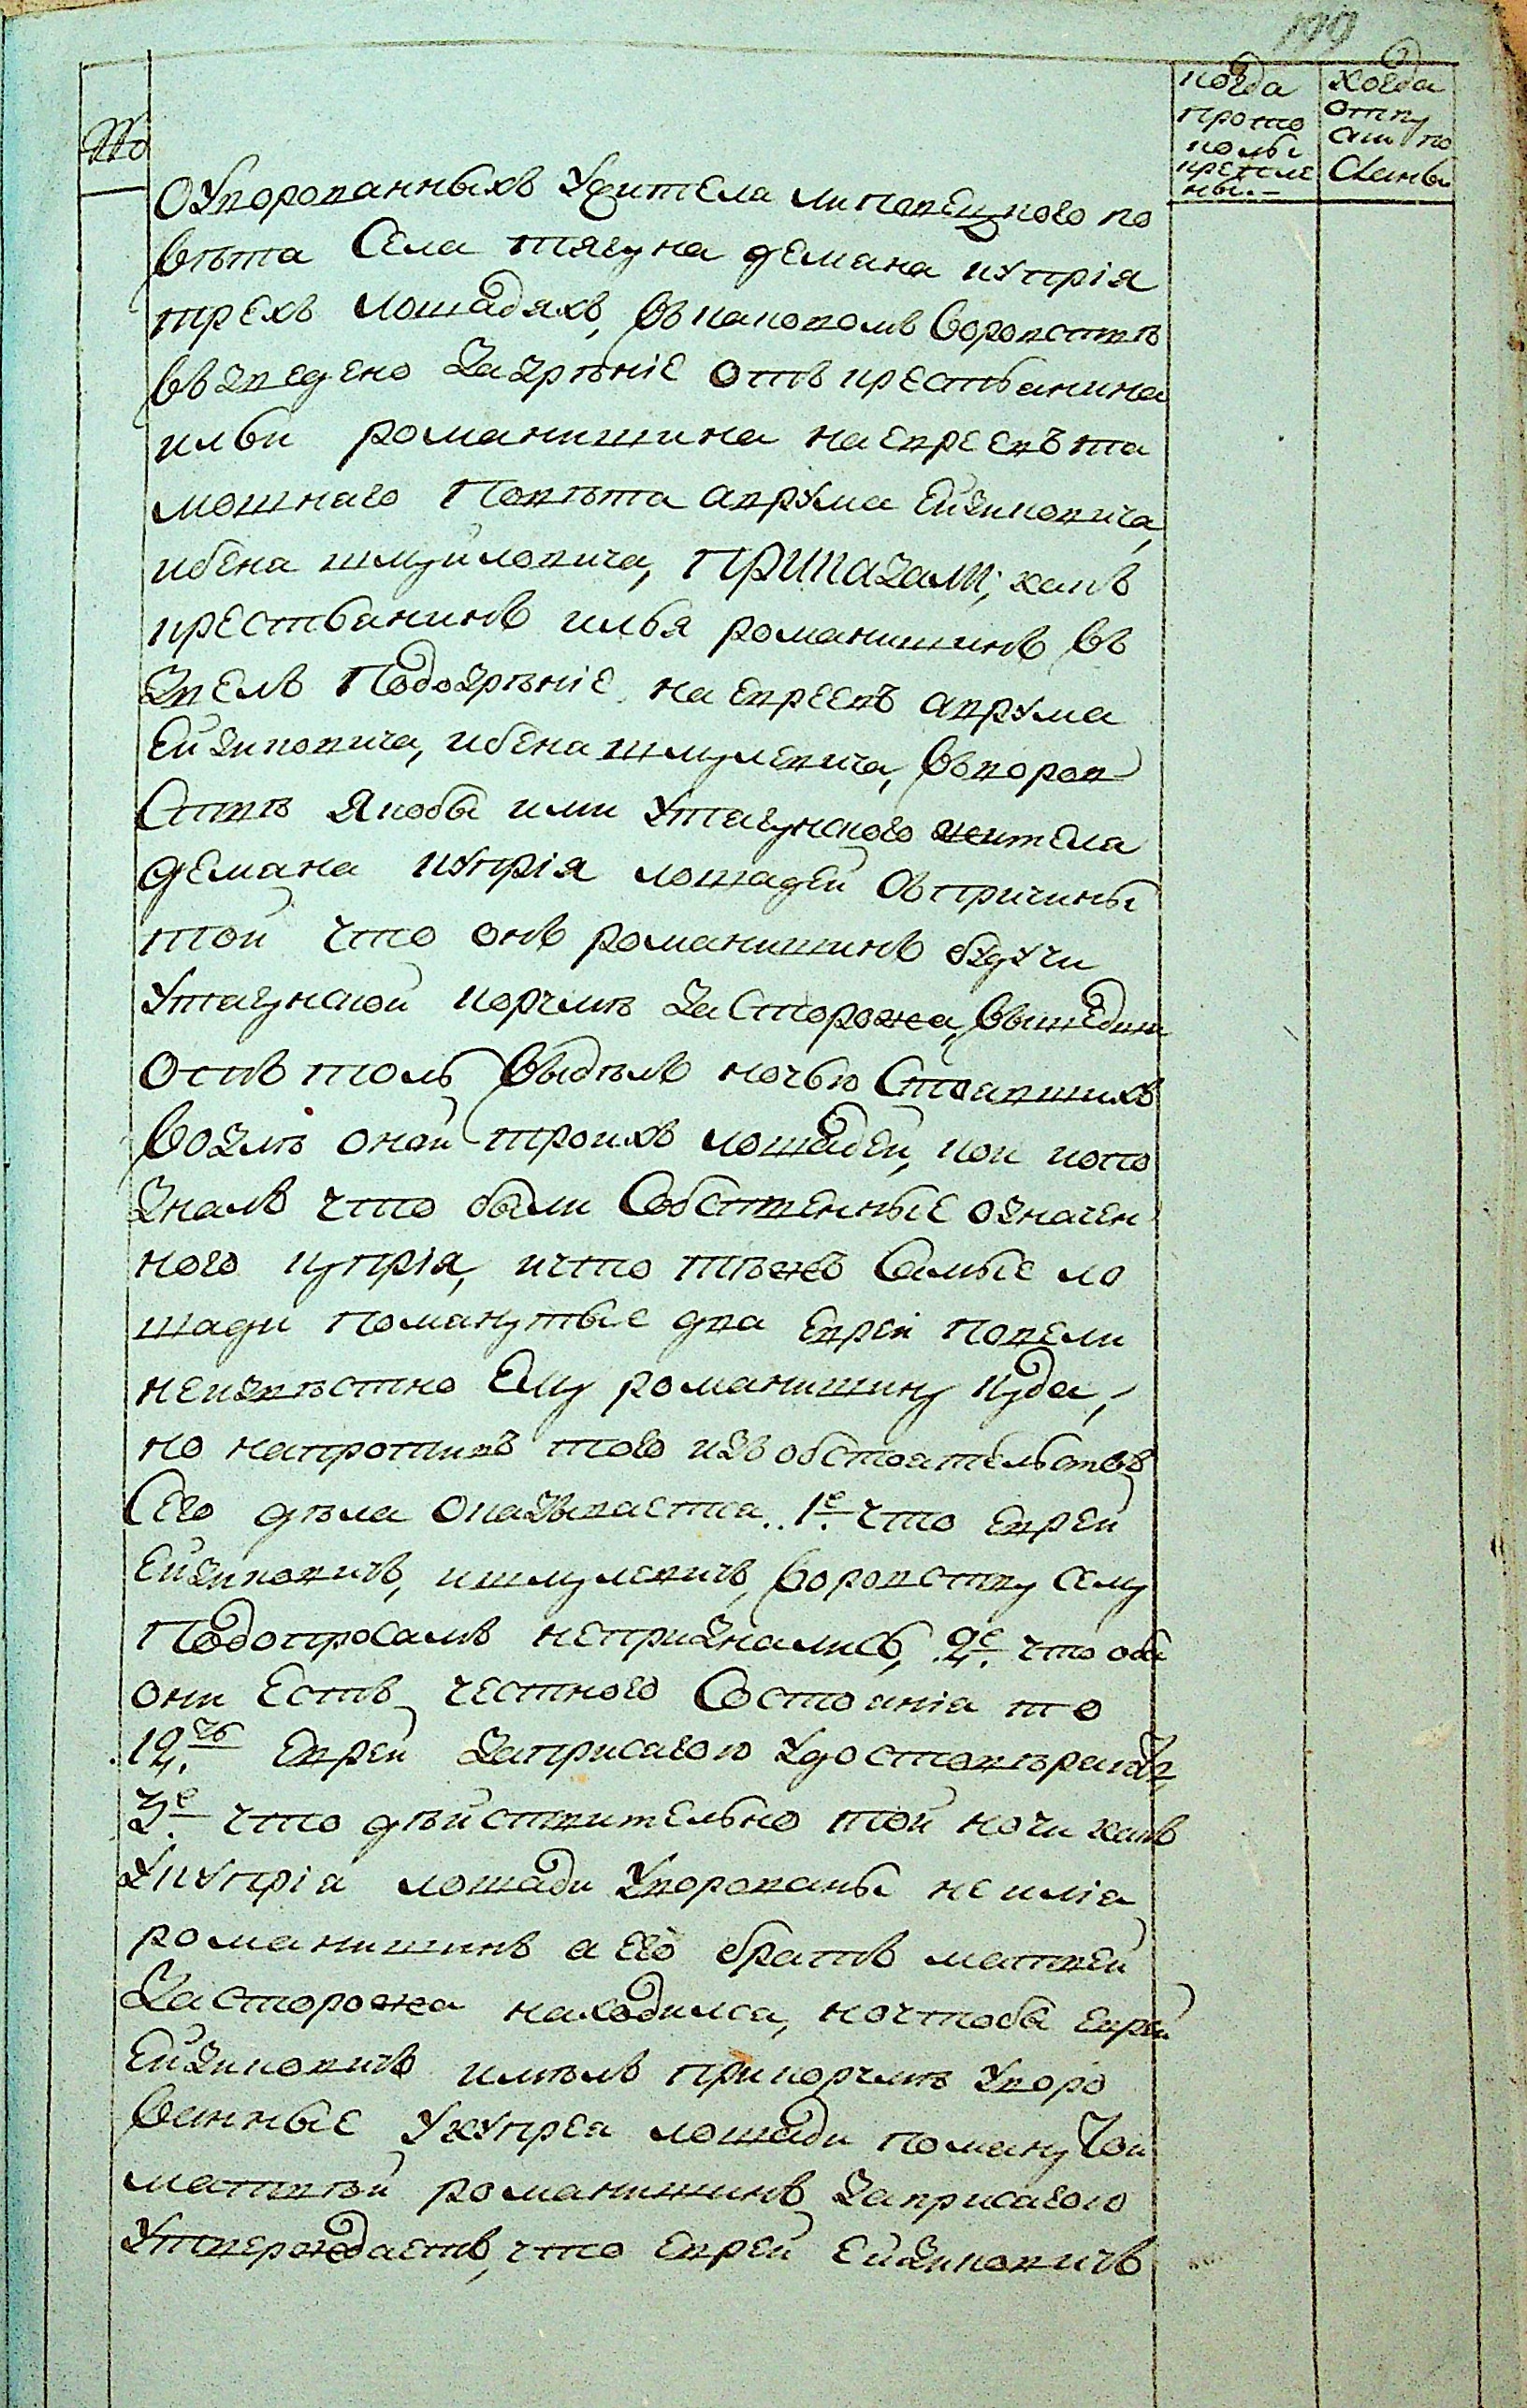 199
№
когда
прото
колы
крепле
ны.
когда
отпу
сти по
сланы
Оукорованныхъ Ужителя Липовецкого по
вѣта Села тягуна демана купрія
трехъ лошадяхъ, въ каковомъ воровствѣ
въ зведено зазрѣніе отъ крестьянина
ильи романишина на евреевъ та
мошнаго Повѣта аврума Ейзиковича,
ибена шмуйловича, ПРИКАЗАЛИ; какъ
крестьянинъ илья романишинъ въ
звелъ Подозрѣніе на евреевъ аврума
Ейзиковича, ибена шмулевича, въ воров
ствѣ якобы ими Утагунского жителя
демана купрія лошадей съ причины
той что онъ романишинъ будучи
Утагунской корчмѣ за сторожа, вышедши
оспѣ толь выдѣлъ ночью стоявшихъ
возлѣ оной троихъ лошадей, кои копо
зналъ что были Собственные означен
ного купрія, ичто тѣжъ Самые ло
шади помянутые два еврей повели
неизвѣстно Ему романишину куда,
но напротивъ того изъ обстоятельствъ
Сего дѣла оказывается. 1е. что еврей
Ейзиковичъ, ишмулевичъ, воровству сему
Подопросамъ непризнались, 2е. что обы
они Есть честного Состоянія то
12ть Еврей заприсягою удостовѣряютъ
3е что дѣйствительно той ночи какъ
Укупрія лошади Украдованы не илія
романишинъ а его братъ матвей
За сторожа находился, но чтобы еврей
Ейзиковичъ имѣлъ при корчмѣ укоро
ванные Укупрея лошади помянутой
матвѣй романишинъ заприсягою
Утверждаетъ, что еврей Ейзиковичъ